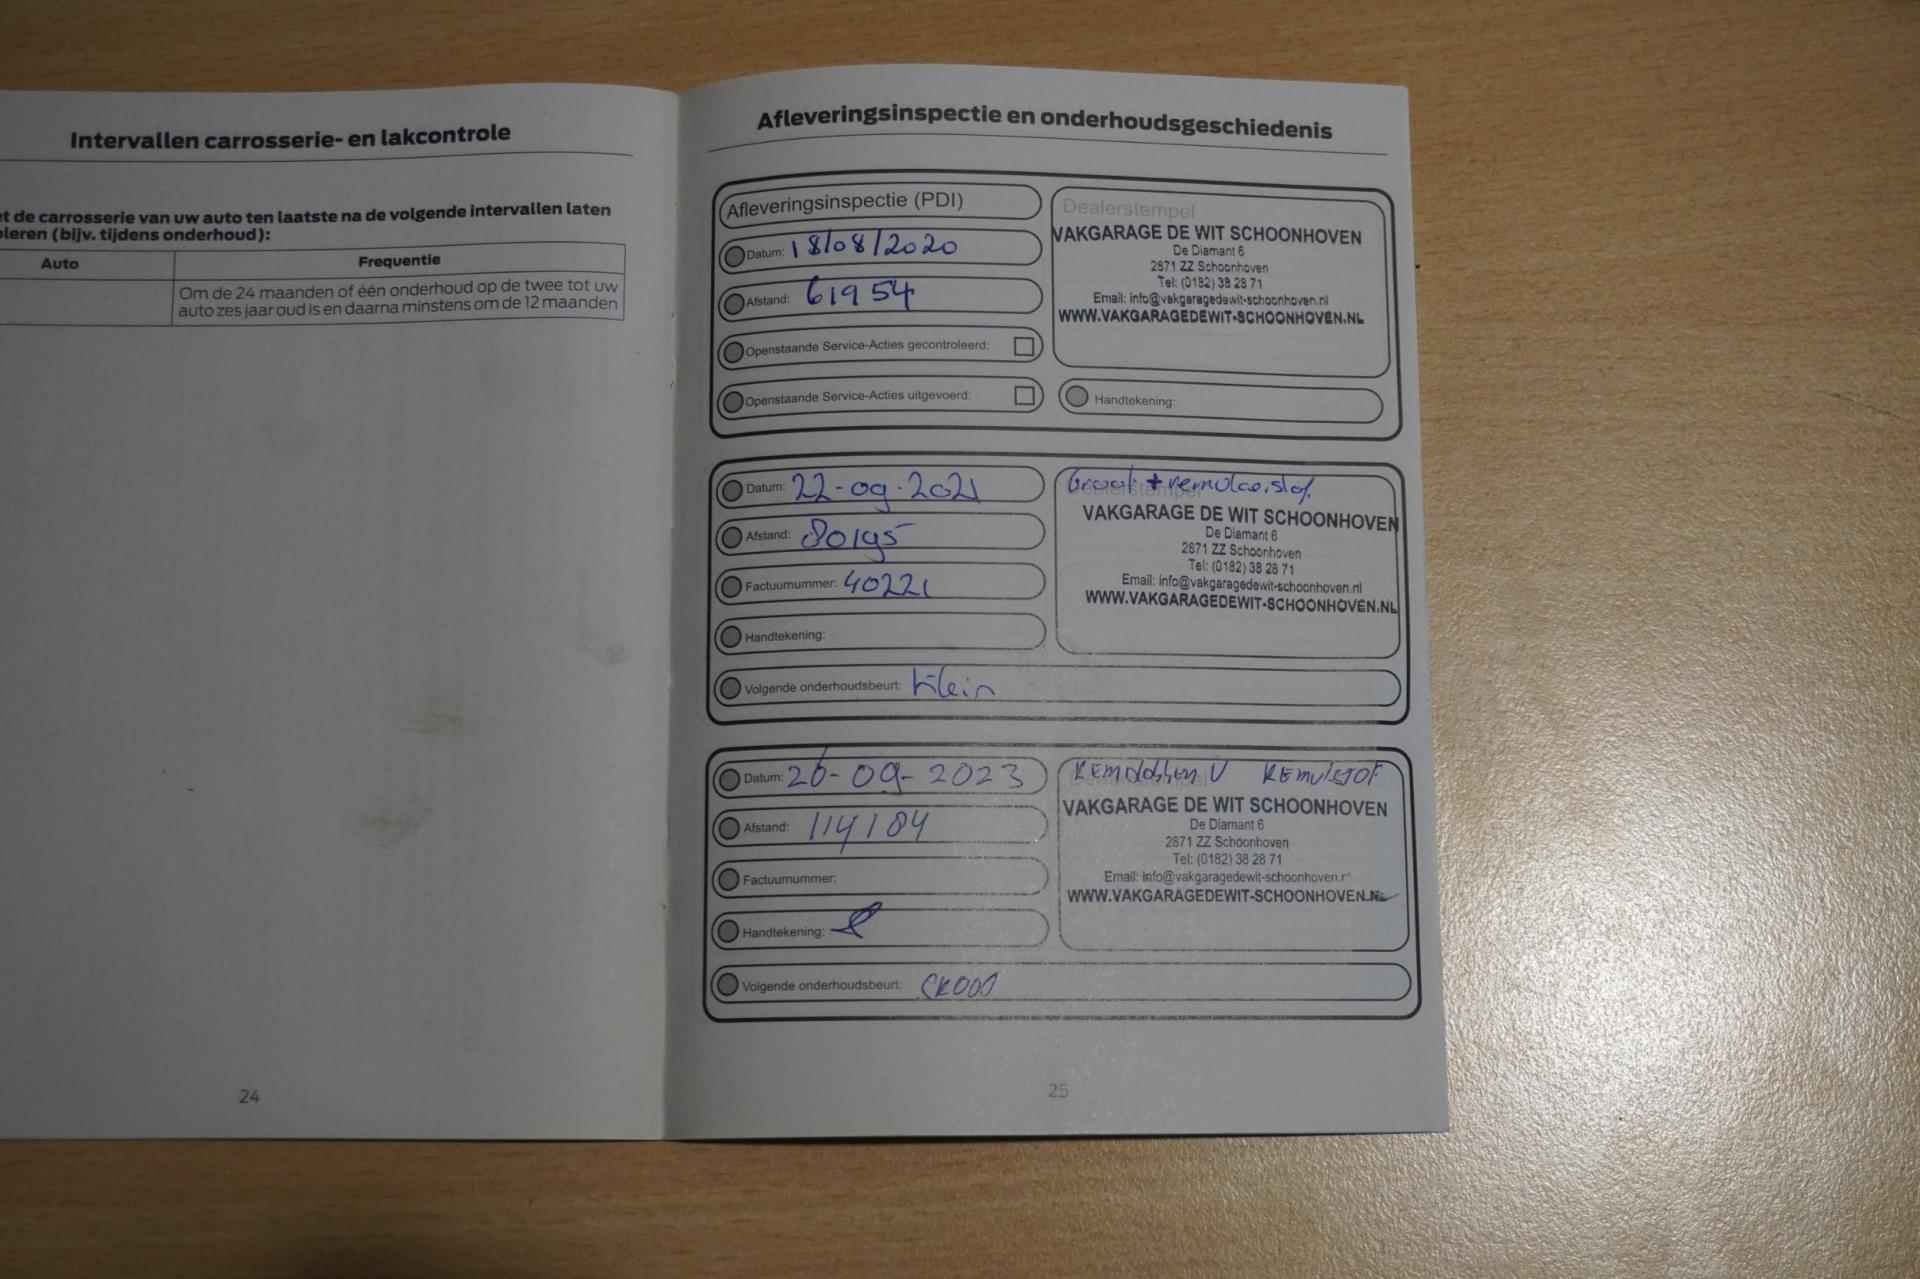 Intervallen carrosserie- en lakcontrole
et de carrosserie van uw auto ten laatste na de volgende intervallen laten
oleren (bijv. tijdens onderhoud):
Auto
Frequentie
Om de 24 maanden of één onderhoud op de twee tot uw
auto zes jaar oud is en daarna minstens om de 12 maanden
24
Afleveringsinspectie en onderhoudsgeschiedenis
Afleveringsinspectie (PDI)
Datum: 18/08/2020
Afstand: 61954
Openstaande Service-Acties gecontroleerd:
Openstaande Service-Acties uitgevoerd:
Dealerstempel
VAKGARAGE DE WIT SCHOONHOVEN
De Diamant 6
2871 ZZ Schoonhoven
Tel: (0182) 38 28 71
Email: info@vakgaragedewit-schoonhoven.nl
WWW.VAKGARAGEDEWIT-SCHOONHOVEN.NL
Handtekening:
Datum: 22-09-2021
Afstand: 80195
Factuurnummer: 40221
Handtekening:
Volgende onderhoudsbeurt: Klein
Groot + remvloeistof.
Dealerstempel
VAKGARAGE DE WIT SCHOONHOVEN
De Diamant 6
2871 ZZ Schoonhoven
Tel: (0182) 38 28 71
Email: info@vakgaragedewit-schoonhoven.nl
WWW.VAKGARAGEDEWIT-SCHOONHOVEN.NL
Datum: 26-09-2023
Afstand: 114184
Factuurnummer:
Handtekening:
Volgende onderhoudsbeurt:
V
VAKGARAGE DE WIT SCHOONHOVEN
De Diamant 6
2871 ZZ Schoonhoven
Tel: (0182) 38 28 71
Email: info@vakgaragedewit-schoonhoven.n
WWW.VAKGARAGEDEWIT-SCHOONHOVEN.NL
25